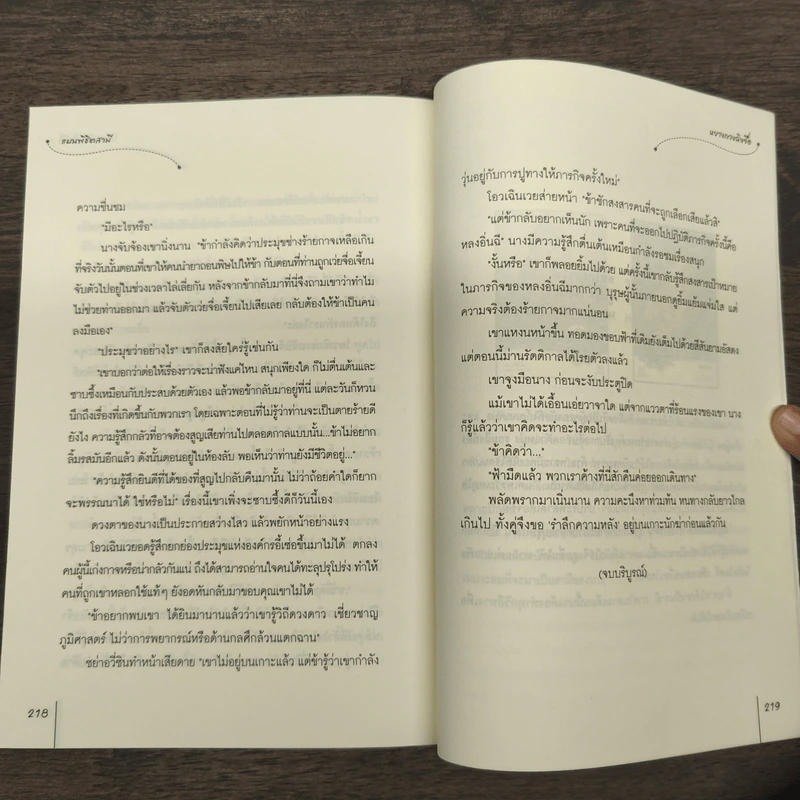 แผนพิชิตสามี
ความชื่นชม
"มีอะไรหรือ"
นางจับจ้องเขานิ่งนาน "ข้ากำลังคิดว่าประมุขช่างร้ายกาจเหลือเกิน
ที่จริงวันนั้นตอนที่เขาให้คนนำยาถอนพิษไปให้ข้า กับตอนที่ท่านถูกเว่ยจื่อเจี้ยน
จับตัวไปอยู่ในช่วงเวลาไล่เลี่ยกัน หลังจากข้ากลับมาที่นี่จึงถามเขาว่าทำไม
ไม่ช่วยท่านออกมา แล้วจับตัวเว่ยจื่อเจี้ยนไปเสียเลย กลับต้องให้ข้าเป็นคน
ลงมือเอง"
"ประมุขว่าอย่างไร" เขาก็สงสัยใคร่รู้เช่นกัน
"เขาบอกว่าต่อให้เรื่องราวจะน่าฟังแค่ไหน สนุกเพียงใด ก็ไม่ตื่นเต้นและ
ซาบซึ้งเหมือนกับประสบด้วยตัวเอง แล้วพอข้ากลับมาอยู่ที่นี่ แต่ละวันก็หวน
นึกถึงเรื่องที่เกิดขึ้นกับพวกเรา โดยเฉพาะตอนที่ไม่รู้ว่าท่านจะเป็นตายร้ายดี
ยังไง ความรู้สึกกลัวที่อาจต้องสูญเสียท่านไปตลอดกาลแบบนั้น...ข้าไม่อยาก
ลิ้มรสมันอีกแล้ว ดังนั้นตอนอยู่ในห้องลับ พอเห็นว่าท่านยังมีชีวิตอยู่..."
"ความรู้สึกยินดีที่ได้ของที่สูญไปกลับคืนมานั้น ไม่ว่าถ้อยคำใดก็ยาก
จะพรรณนาได้ ใช่หรือไม่" เรื่องนี้เขาเพิ่งจะซาบซึ้งดีก็วันนี้เอง
ดวงตาของนางเป็นประกายสว่างไสว แล้วพยักหน้าอย่างแรง
โอวเฉินเวยอดรู้สึกยกย่องประมุขแห่งองค์กรอี้เซ่อขึ้นมาไม่ได้ ตกลง
คนผู้นี้เก่งกาจหรือน่ากลัวกันแน่ ถึงได้สามารถอ่านใจคนได้ทะลุปรุโปร่ง ทำให้
คนที่ถูกเขาหลอกใช้แท้ๆ ยังอดหันกลับมาขอบคุณเขาไม่ได้
"ข้าอยากพบเขา ได้ยินมานานแล้วว่าเขารู้วิถีดวงดาว เชี่ยวชาญ
ภูมิศาสตร์ ไม่ว่าการพยากรณ์หรือด้านกลศึกล้วนแตกฉาน"
ซย่าอวี่ซินทำหน้าเสียดาย "เขาไม่อยู่บนเกาะแล้ว แต่ข้ารู้ว่าเขากำลัง
218
วุ่นอยู่กับการปูทางให้ภารกิจครั้งใหม่"
โอวเฉินเวยส่ายหน้า "ข้าชักสงสารคนที่จะถูกเลือกเสียแล้วสิ"
"แต่ข้ากลับอยากเห็นนัก เพราะคนที่จะออกไปปฏิบัติภารกิจครั้งนี้คือ
หลงอิ่นฉี" นางมีความรู้สึกตื่นเต้นเหมือนกำลังรอชมเรื่องสนุก
"งั้นหรือ" เขาก็พลอยยิ้มไปด้วย แต่ครั้งนี้เขากลับรู้สึกสงสารเป้าหมาย
ในภารกิจของหลงอิ่นฉีมากกว่า บุรุษผู้นั้นภายนอกดูยิ้มแย้มแจ่มใส แต่
ความจริงต้องร้ายกาจมากแน่นอน
เขาแหงนหน้าขึ้น ทอดมองขอบฟ้าที่เดิมยังเต็มไปด้วยสีสันยามอัสดง
แต่ตอนนี้ม่านรัตติกาลได้โรยตัวลงแล้ว
เขาจูงมือนาง ก่อนจะงับประตูปิด
แม้เขาไม่ได้เอื้อนเอ่ยวาจาใด แต่จากแววตาที่ร้อนแรงของเขา นาง
ก็รู้แล้วว่าเขาคิดจะทำอะไรต่อไป
"ข้าคิดว่า..."
"ฟ้ามืดแล้ว พวกเราค้างที่นี่สักคืนค่อยออกเดินทาง"
พลัดพรากมาเนิ่นนาน ความคะนึงหาท่วมท้น หนทางกลับยาวไกล
เกินไป ทั้งคู่จึงขอ 'รำลึกความหลัง' อยู่บนเกาะนักฆ่าก่อนแล้วกัน
(จบบริบูรณ์)
219